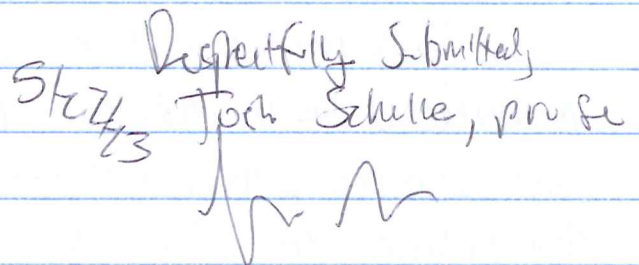 Respectfully Submitted,
Josh Schulke, pro se